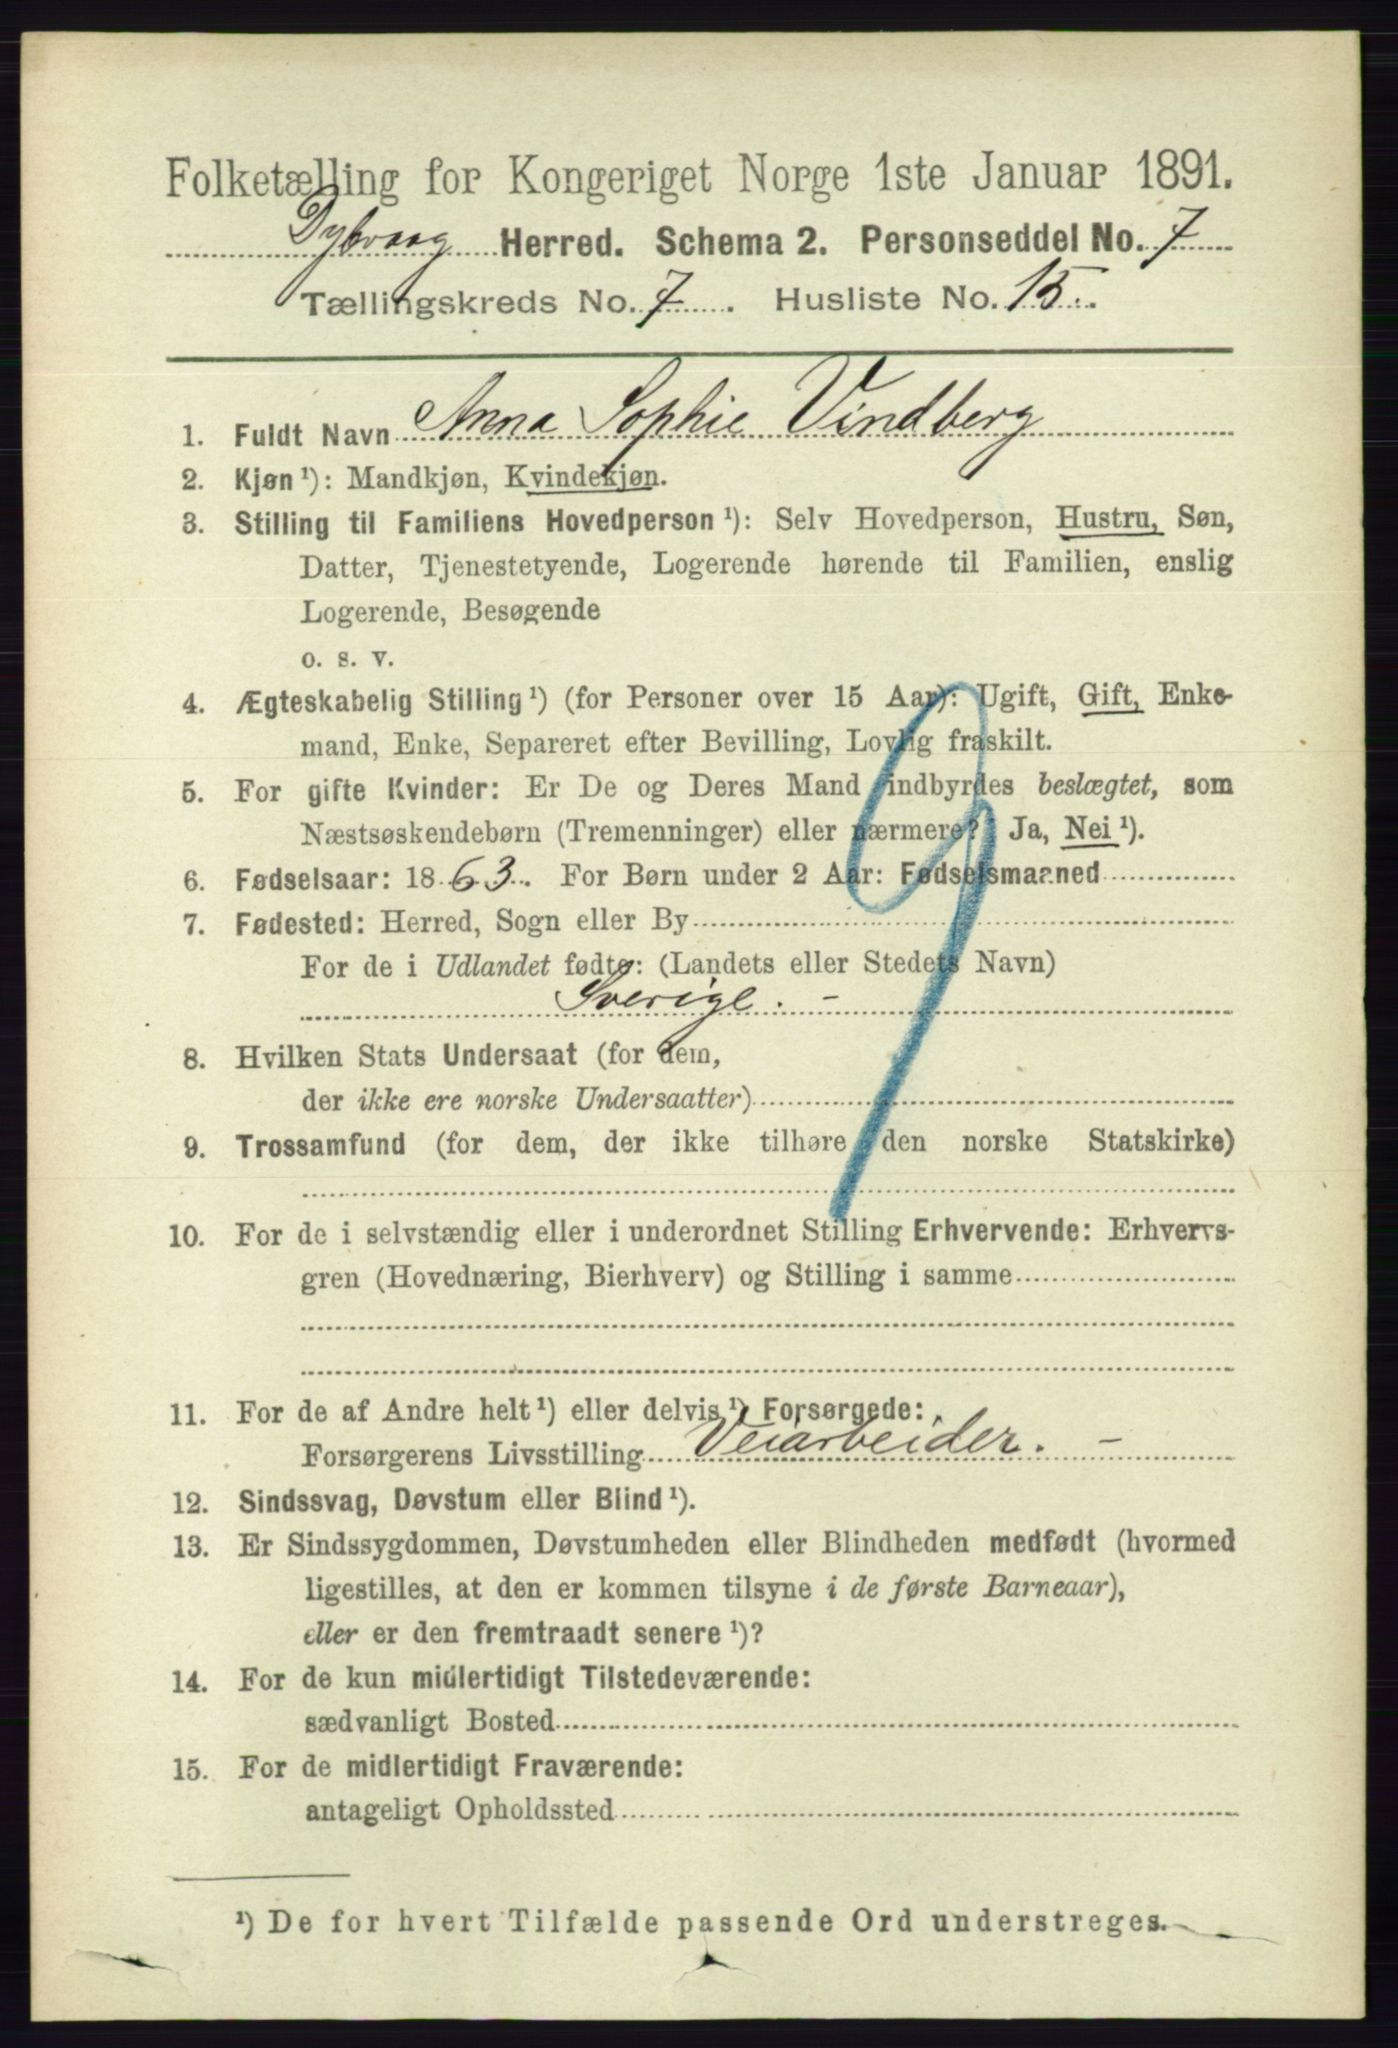 Folketælling for Kongeriget Norge 1ste Januar 1891.
Dybvaag Herred. Schema 2. Personseddel No. 7
Tællingskreds No. 7. Husliste No. 15.
1. Fuldt Navn Anna Sophie Vindberg
2. Kjøn ¹): Mandkjøn, Kvindekjøn.
3. Stilling til Familiens Hovedperson ¹): Selv Hovedperson, Hustru, Søn,
Datter, Tjenestetyende, Logerende hørende til Familien, enslig
Logerende, Besøgende
o. s. v.
4. Ægteskabelig Stilling ¹) (for Personer over 15 Aar): Ugift, Gift, Enke-
mand, Enke, Separeret efter Bevilling, Lovlig fraskilt.
5. For gifte Kvinder: Er De og Deres Mand indbyrdes beslægtet, som
Næstsøskendebørn (Tremenninger) eller nærmere? Ja, Nei ¹).
6. Fødselsaar: 1863. For Børn under 2 Aar: Fødselsmaaned
7. Fødested: Herred, Sogn eller By
For de i Udlandet fødte: (Landets eller Stedets Navn)
Sverige. -
8. Hvilken Stats Undersaat (for dem,
der ikke ere norske Undersaatter)
9. Trossamfund (for dem, der ikke tilhøre den norske Statskirke)
10. For de i selvstændig eller i underordnet Stilling Erhvervende: Erhvervs-
gren (Hovednæring, Bierhverv) og Stilling i samme
11. For de af Andre helt ¹) eller delvis ¹) Forsørgede:
Forsørgerens Livsstilling Veiarbeider. -
12. Sindssvag, Døvstum eller Blind ¹).
13. Er Sindssygdommen, Døvstumheden eller Blindheden medfødt (hvormed
ligestilles, at den er kommen tilsyne i de første Barneaar),
eller er den fremtraadt senere ¹)?
14. For de kun midlertidigt Tilstedeværende:
sædvanligt Bosted
15. For de midlertidigt Fraværende:
antageligt Opholdssted
¹) De for hvert Tilfælde passende Ord understreges.
9